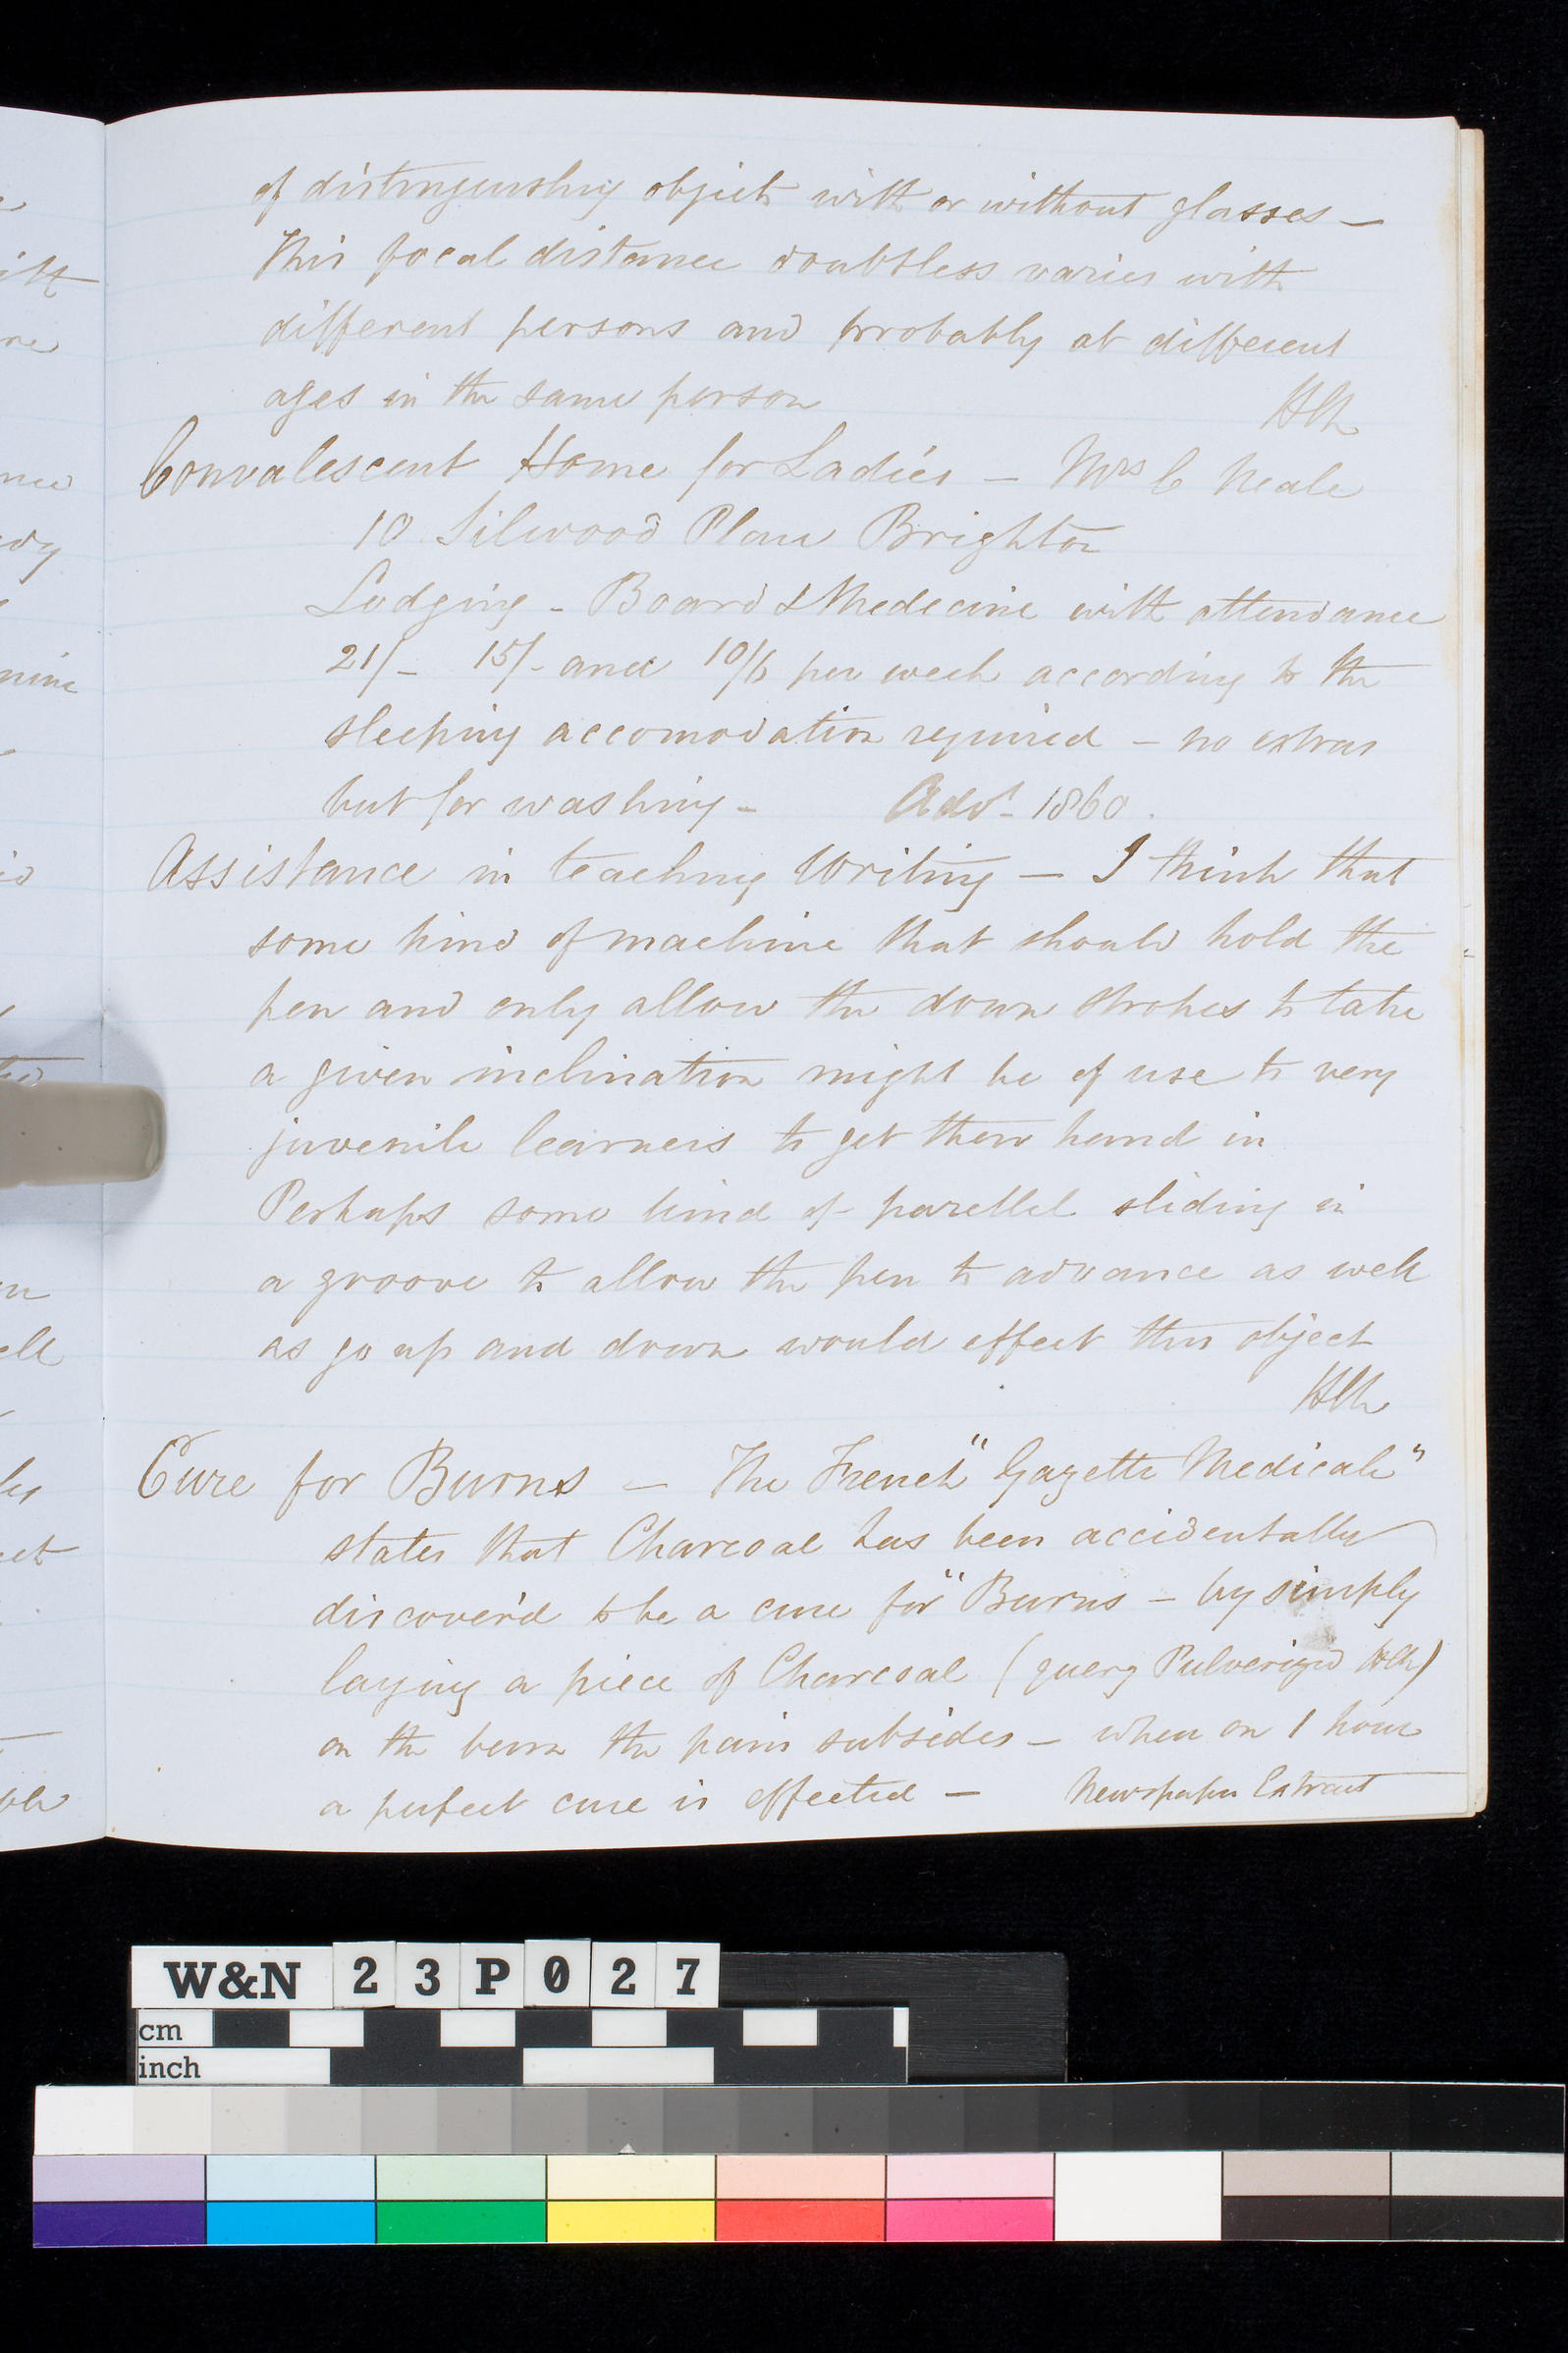 of distinguishing objects with or without glasses –
This focal distance doubtless varies with
different persons and probably at different
ages in the same person
Convalescent Home for Ladies – Mrs C Neale
10 Silwood Place Brighton
Lodging – Board & Medicine with attendance
21/– 15/– and 10/6 per week according to the
sleeping accomodation required – no extras
but for washing – Advt – 1860.
Assistance in teaching Writing – I think that
some kind of machine that should hold the
pen and only allow the down strokes to take
a given inclination might be of use to very
juvenile learners to get their hand in
Perhaps some kind of parellel sliding in
a groove to allow the pen to advance as well
as go up and down would effect this object
Cure for Burns – The French "Gazette Medicale"
states that Charcoal has been accidentally
discover'd to be a cure for "Burns – by simply
laying a piece of Charcoal (query Pulverized
on the burn the pain subsides – when on 1 hour
a perfect cure is effected – Newspaper Extract
W&N 23P027
cm
inch